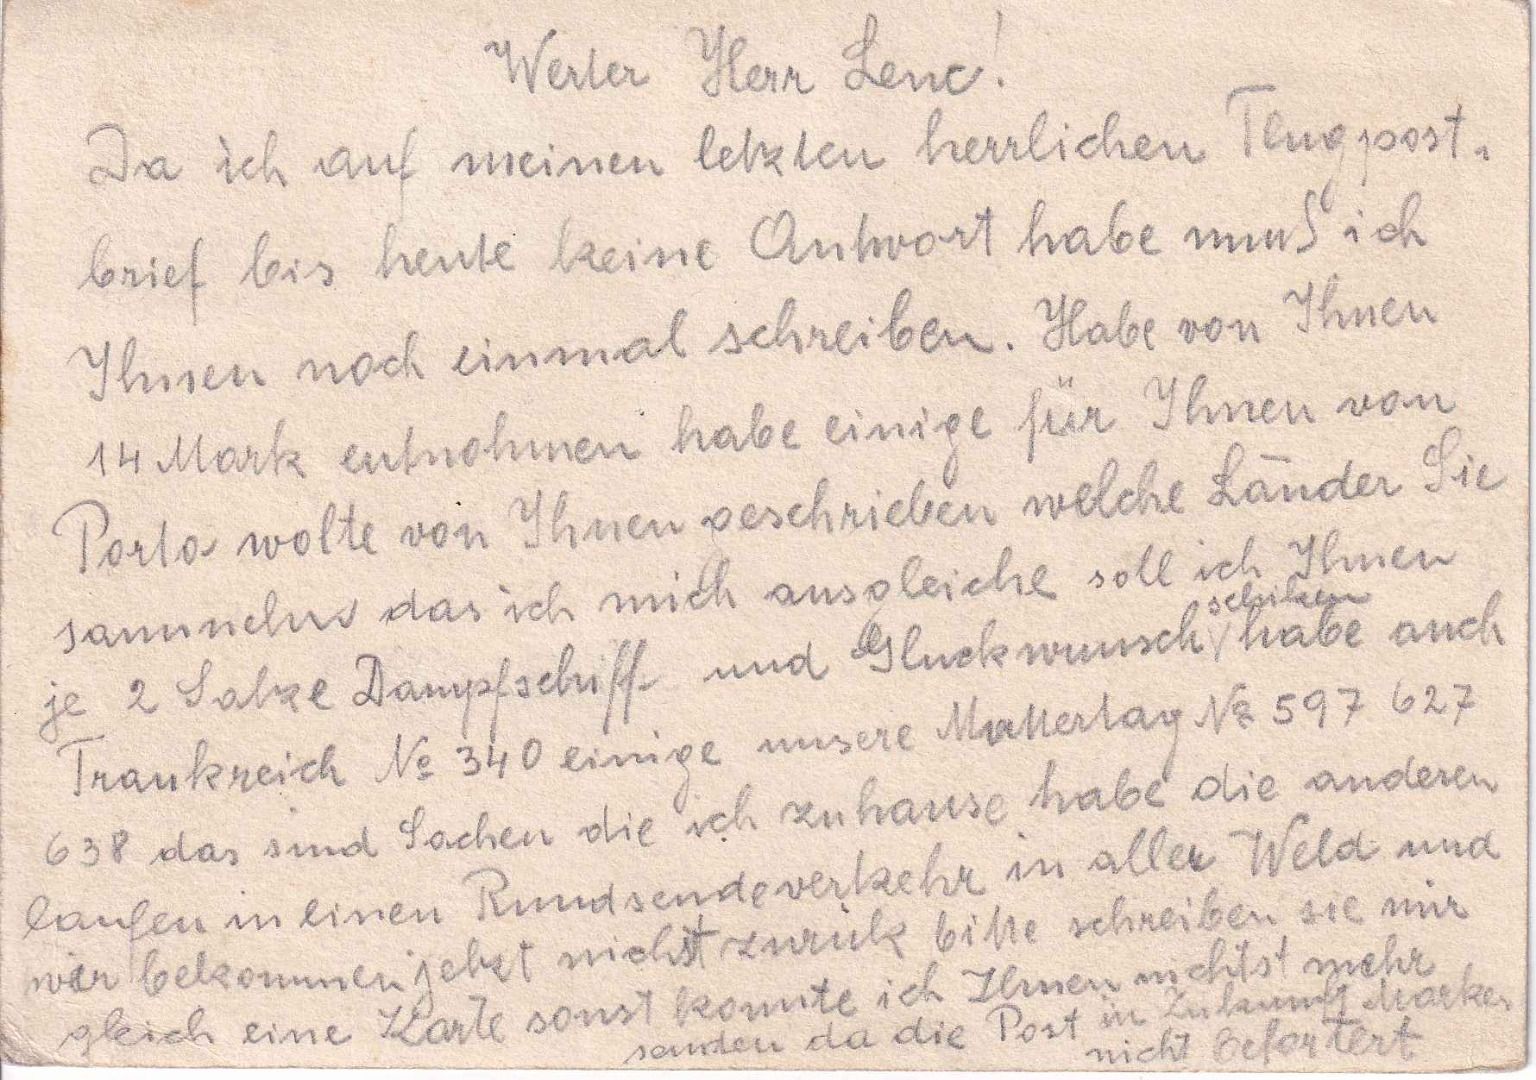 Werter Herr Lenc!
Da ich auf meinen letzten herrlichen Flugpost-
brief bis heute keine Antwort habe muß ich
Ihnen noch einmal schreiben. Habe von Ihnen
14 Mark entnohmen habe einige für Ihnen von
Porto wolte von Ihnen geschrieben welche Länder Sie
sammeln das ich mich ausgleiche soll ich Ihnen
je 2 Satze Dampfschiff und Gluckwunsch schicken habe auch
Frankreich No 340 einige unsere Muttertag No 597 627
638 das sind Sachen die ich zuhause habe die anderen
laufen in einen Rundsendeverkehr in aller Weld und
wir bekommen jetzt nichst zurük bitte schreiben sie mir
gleich eine Karte sonst konnte ich Ihnen nichtst mehr
senden da die Post in Zukunft Marken
nicht befortert